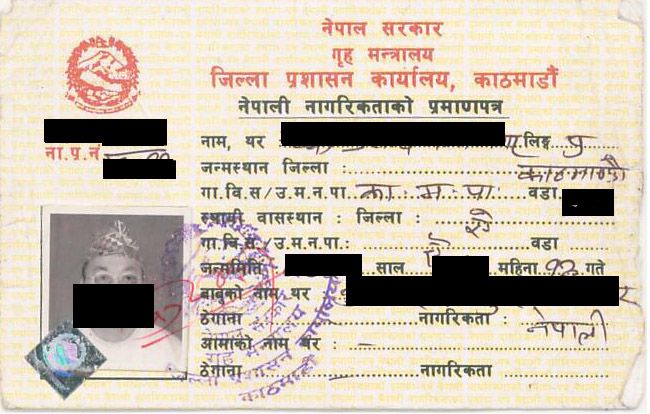 नेपाल सरकार
गृह मन्त्रालय
जिल्ला प्रशासन कार्यालय, काठमाडौं
नेपाली नागरिकताको प्रमाणपत्र
ना.प्र.नं.
नाम, थर लिङ्ग पु
जन्मस्थान जिल्ला : काठमाण्डौ
गा.वि.स/उ.म.न.पा. का.म.पा. वडा
स्थायी वासस्थान : जिल्ला : ऐ
गा.वि.स./उ.म.न.पा.: ऐ वडा
जन्ममिति : साल महिना १२ गते
बाबुको नाम थर
ठेगाना नागरिकता : नेपाली
आमाको नाम थर :
ठेगाना नागरिकता :
गृह मन्त्रालय
काठमाडौं